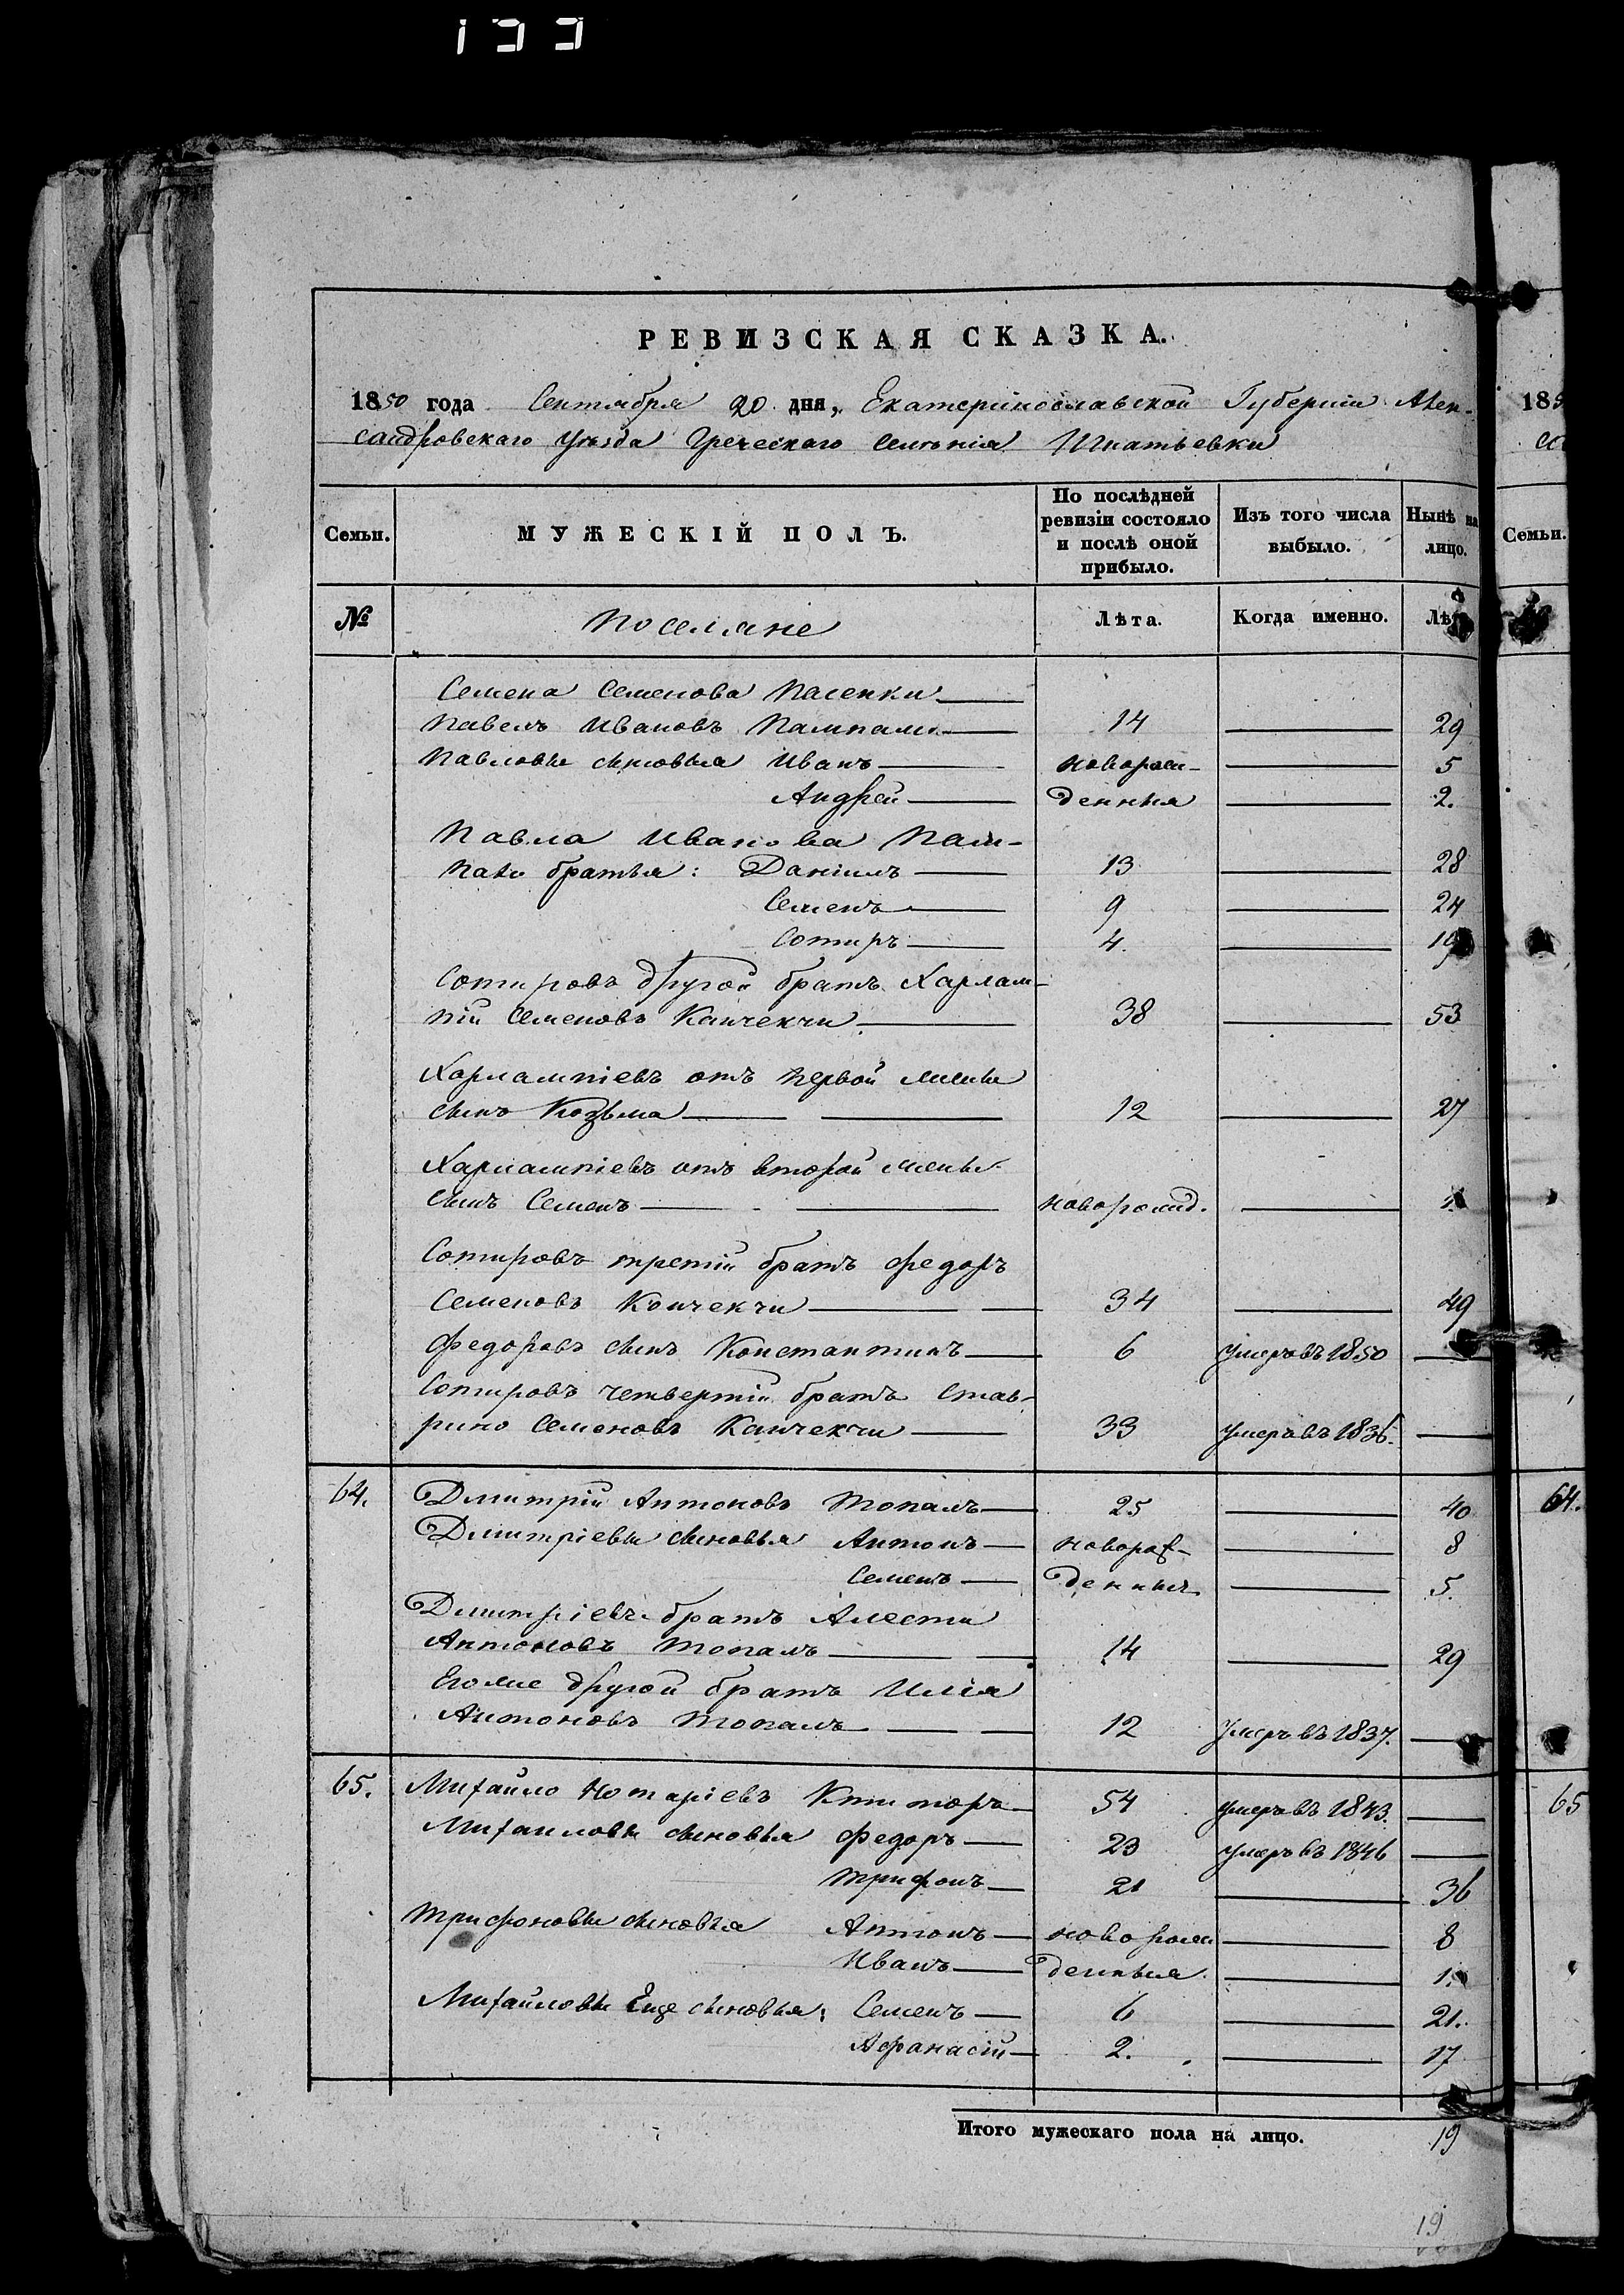 133
РЕВИЗСКАЯ СКАЗКА.
1850 года Сентября 20 дня, Екатеринославской Губернии Алек-
сандровскаго Уезда Греческаго Селенія Игнатьевки
Семьи. МУЖЕСКІЙ ПОЛЪ. По послѣдней ревизіи состояло и послѣ оной прибыло. Изъ того числа выбыло. Нынѣ на лицо.
№ Поселяне Лѣта. Когда именно. Лѣ
Семена Семенова Пасенки
Павелъ Ивановъ 14 29
Павловы сыновья Иванъ новорож- 5
Андрей денныя 2.
Павла Иванова
братья: Даніилъ 13 28
Семенъ 9 24
Сотиръ 4. 19
Сотировъ другой братъ Харлам-
пій Семеновъ Капчекчи 38 53
Харлампіевъ отъ первой жены
сынъ Козьма 12 27
Харлампіевъ отъ второй жены
сынъ Семенъ новорожд. 1.
Сотировъ третій братъ Федоръ
Семеновъ Капчекчи 34 49
Федоровъ сынъ Константинъ 6 умеръ въ 1850
Сотировъ четвертій братъ Став-
рино Семеновъ Капчекчи 33 умеръ въ 1836.
64. Дмитрій Антоновъ Топалъ 25 40 64.
Дмитріевы сыновья Антонъ новорож- 8
Семенъ денныя 5.
Дмитріевъ братъ
Антоновъ Топалъ 14 29
Егоже другой братъ Илія
Антоновъ Топалъ 12 Умеръ въ 1837.
65. Михайло Нотаріевъ Ктиторъ 54 умеръ въ 1843. 65
Михаиловы сыновья Федоръ 23 умеръ въ 1846
Трифонъ 21 36
Трифоновы сыновья Антонъ новорож 8
Иванъ денныя 1.
Михайловы Еще сыновья: Семенъ 6 21.
Афанасій 2. 17
Итого мужескаго пола на лицо. 19
19
185
Семьи.